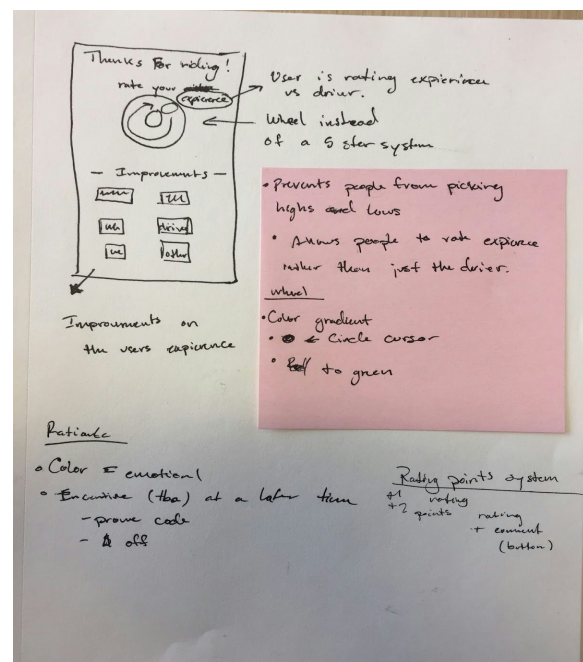 Thanks for riding!
rate your
experience
User is rating expirience
vs driver.
Wheel instead
of a 5 ster system
— Improvements —
driver
other
Improvments on
the users expirence
• Prevents people from picking
highs and lows
• Allows people to rate expirence
rather than just the driver.
wheel
• Color gradient
• ← Circle cursor
• Red to green
Rationale
• Color = emotional
• Encentive (tba) at a later time
- promo code
- $ off
Rating points system
+1 rating
+2 points
rating
+ comment
(button)